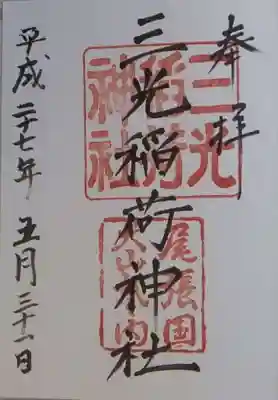 奉拝
三光稲荷神社
三光稲荷神社
尾張国犬山城内
平成二十七年五月三十一日